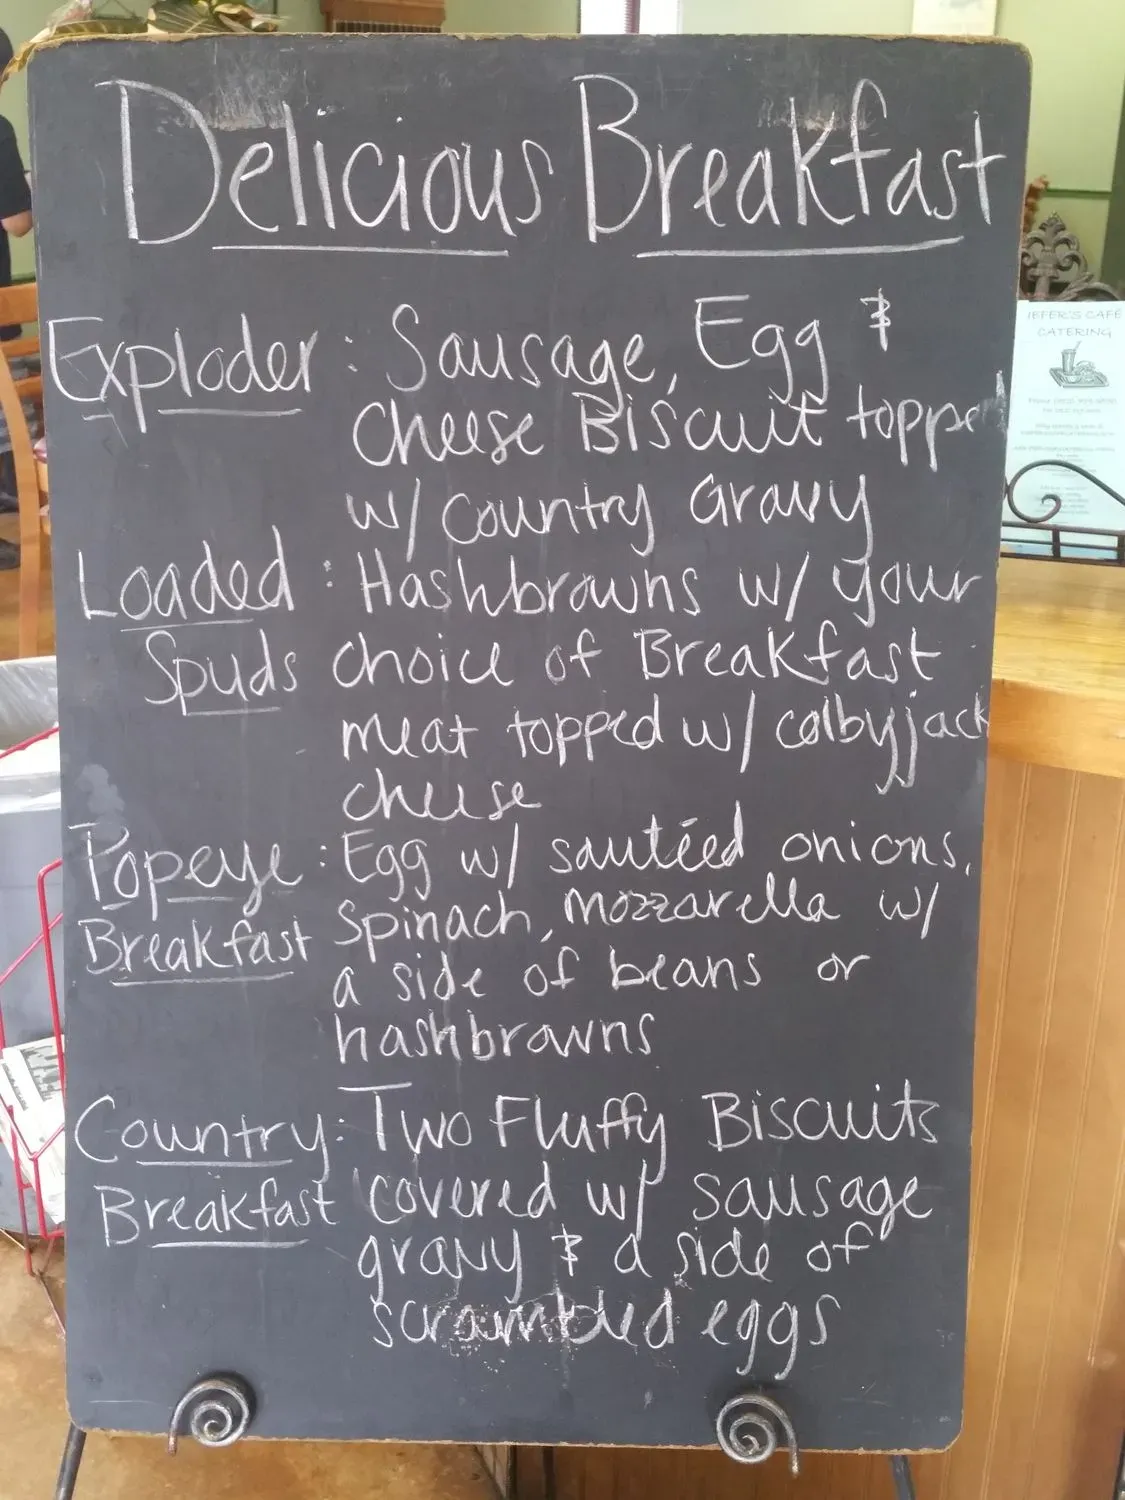 Delicious Breakfast
Exploder: Sausage, Egg &
Cheese Biscuit topped
w/ country Gravy
Loaded : Hashbrowns w/ your
Spuds choice of Breakfast
meat topped w/ colbyjack
cheese
Popeye : Egg w/ sautéed onions,
Breakfast spinach, mozzarella w/
a side of beans or
hashbrowns
Country : Two Fluffy Biscuits
Breakfast covered w/ sausage
gravy & a side of
scrambled eggs
JEFFER'S CAFE
CATERING